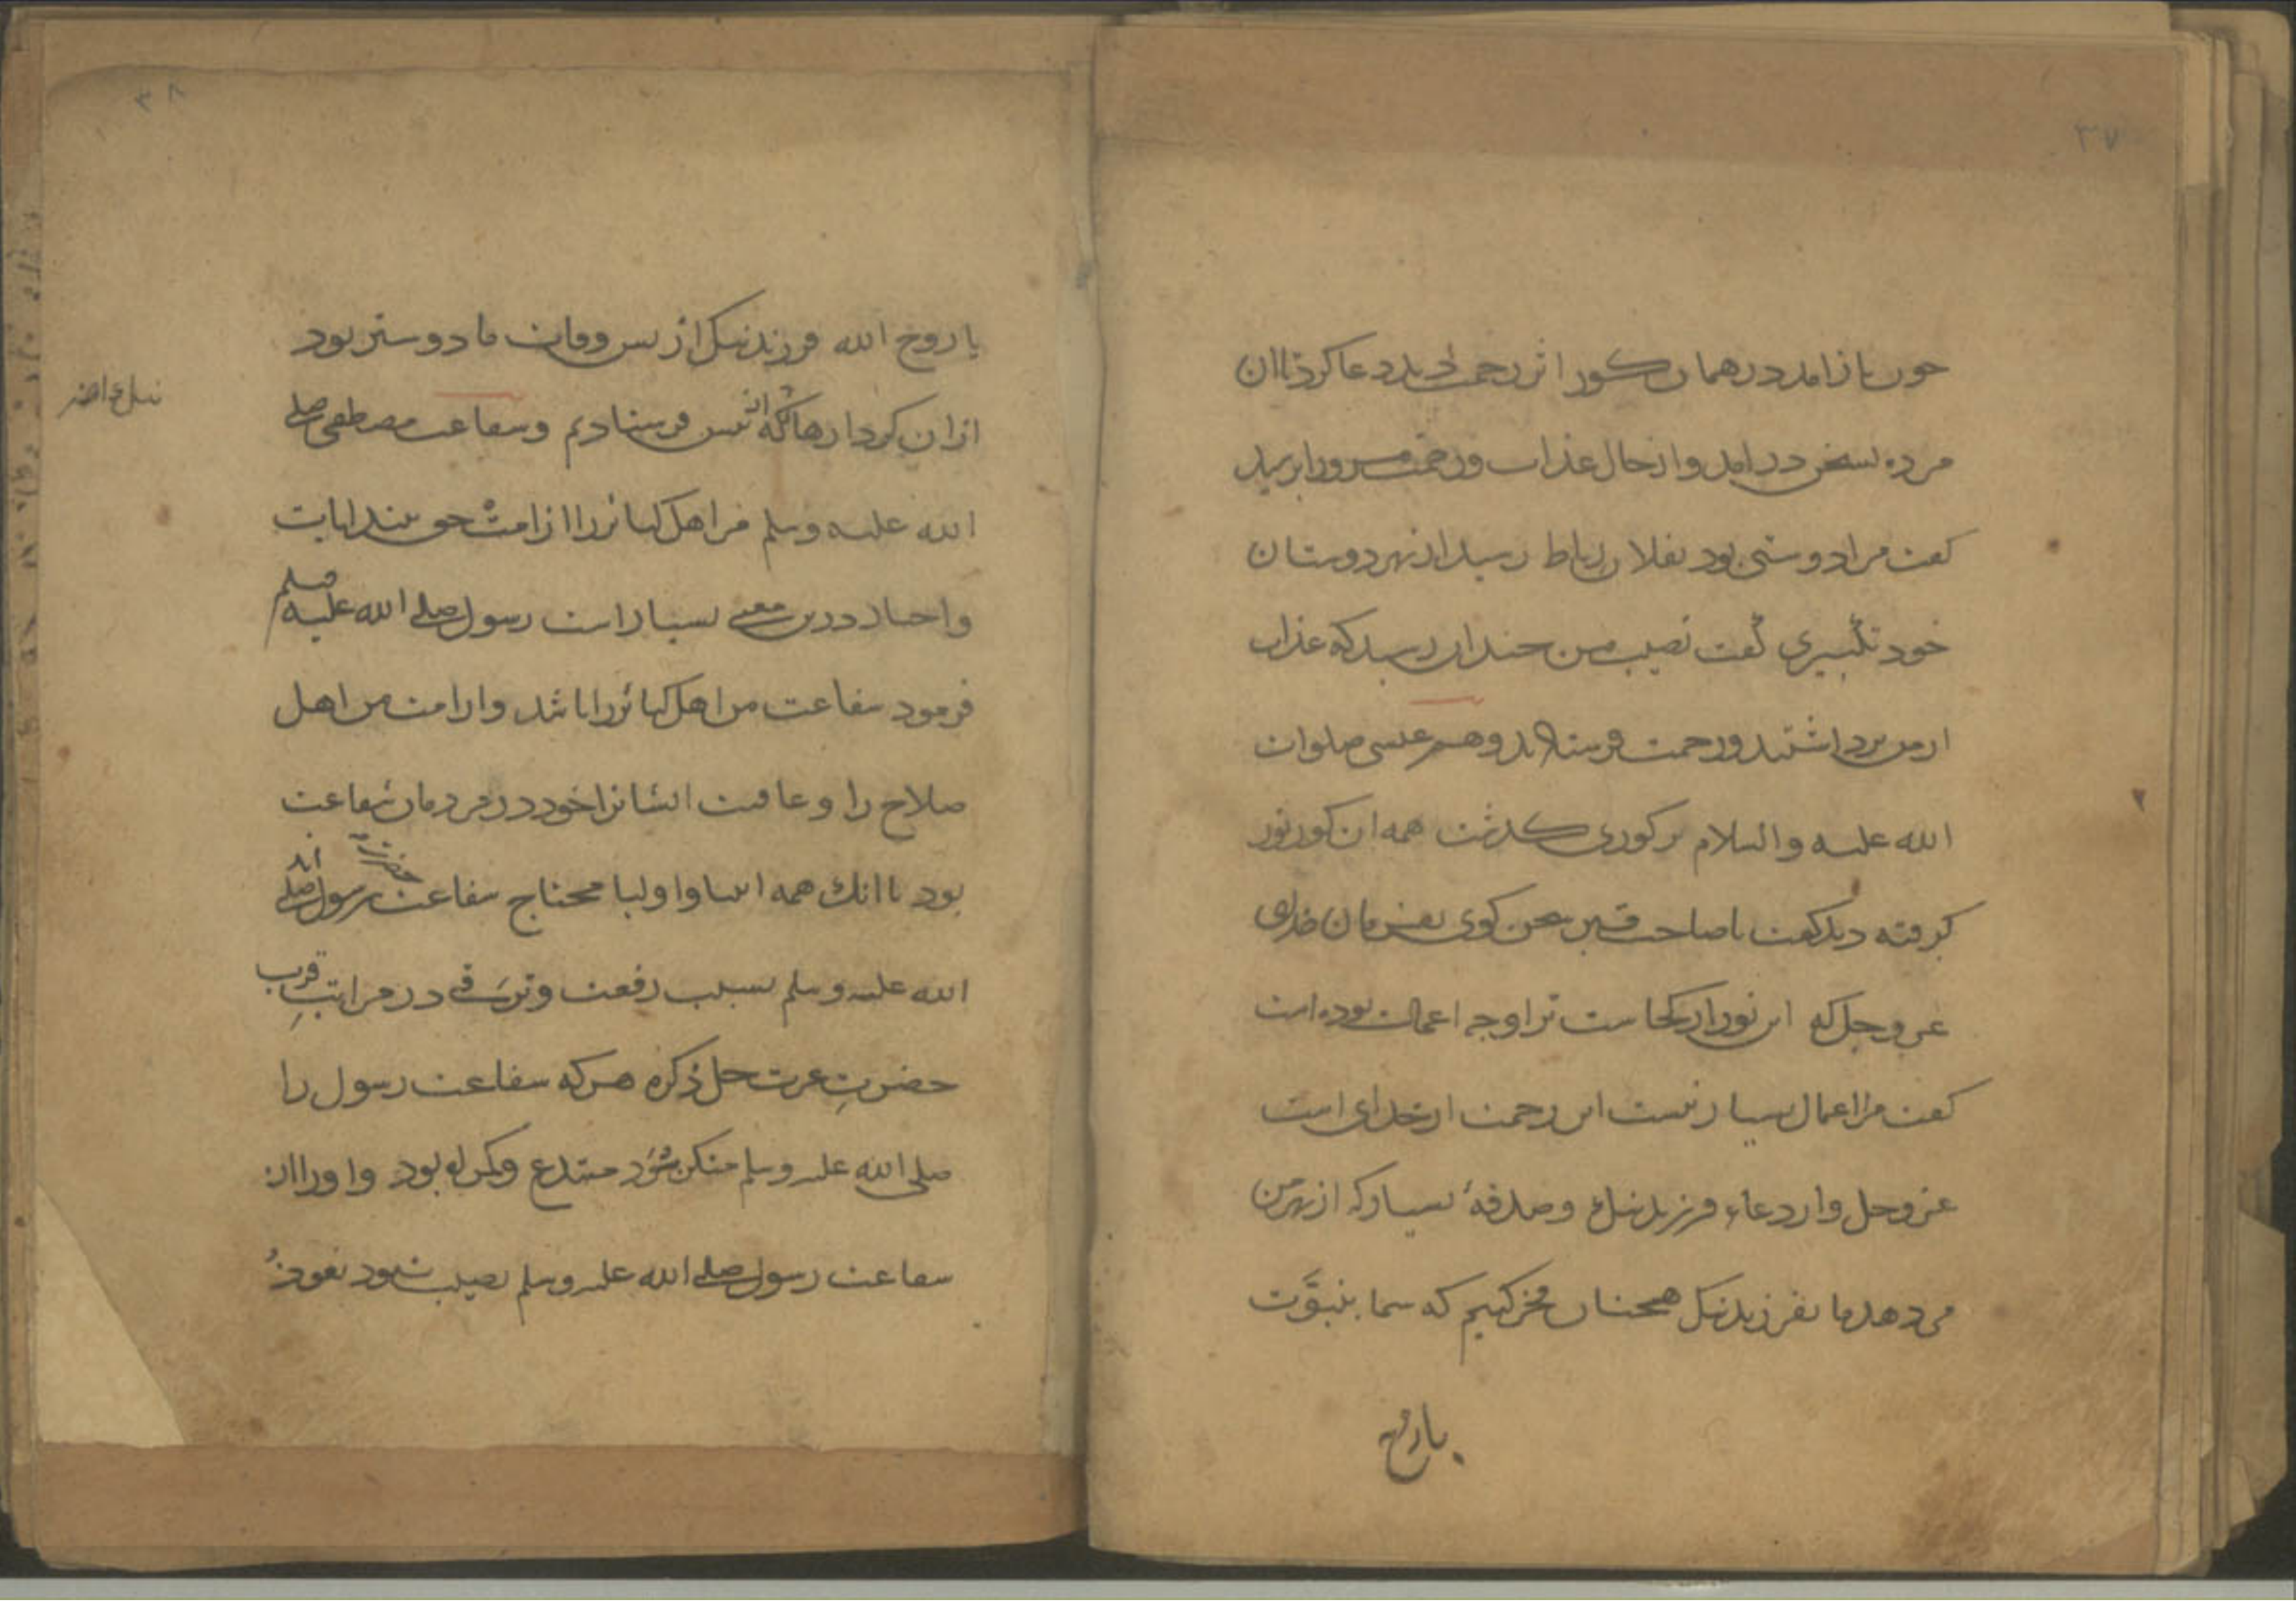 ۳۷
چون باز آمد در همان کور اثر رحمت دید دعا کرد تا آن
مرده بسخن درآمد و از حال عذاب و رحمت مرورا پرسید
کفت مرا دوستی بود بفلان رباط رسید از بهر دوستان
خود تکبیری کفت نصیب من چندان رسید که عذاب
از من برداشتند و رحمت فرستادند و هم عیسی صلوات
الله علیه والسلام بر کوری کذشت همه آن کور نور
کرفته دید کفت یا صاحب قبر سخن کوی بفرمان خدای
عز و جل که این نور از کجاست ترا و چه اعمالت بوده است
کفت مرا اعمال بسیار نیست این رحمت از خدای است
عز و جل و از دعاء فرزند نیک و صدقهٔ بسیار که از بهر من
می دهد ما بفرزند نیک همچنان فخر کنیم که شما بنبوّت
یا روح
۳۸
یا روح الله فرزند نیک از پس وفات ما دوستر بود
از آن کردارها که از پیش فرستادیم و شفاعت مصطفی صلی
الله علیه وسلم مر اهل کبائر را از امت
و اخبار درین معنی بسیار است رسول صلی الله علیه وسلم
فرمود شفاعت من اهل کبائر را باشد و از امت من اهل
صلاح را و عاقبت ایشانرا خود در مردمان شفاعت
بود با آنک همه انبیا و اولیا محتاج شفاعت رسول صلی
الله علیه وسلم بسبب رفعت و ترقی در مراتبِ قرب
حضرتِ عزت جل ذکره هر که شفاعت رسول را
صلی الله علیه وسلم منکر شود مبتدع و کمراه بود و او را از
شفاعت رسول صلی الله علیه وسلم نصیب نبود نعوذ